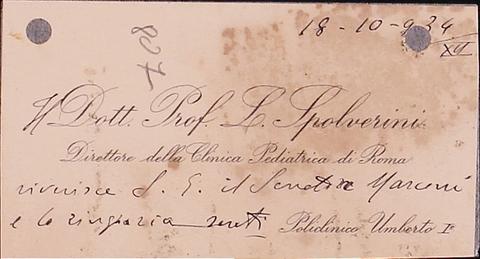 18-10-934
XII
807
Il Dott. Prof. L. Spolverini
Direttore della Clinica Pediatrica di Roma
S. E. il Senatore Marconi
e lo ringrazia
Policlinico Umberto I°